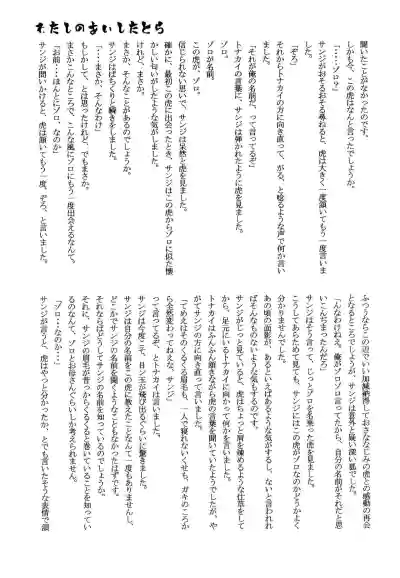 わたしのあいしたとら
聞いたことがなかったのです。
しかも今、この虎はなんと言ったでしょうか。
「……ゾロ？」
サンジがおそるおそる尋ねると、虎は大きく一度頷いてもう一度言いま
した。
「ぞろ」
トナカイの方に向き直って、がる、と唸るような声で何か言い
ました。
「それが俺の名前だ、って言ってるぞ」
トナカイの言葉に、サンジは弾かれたように虎を見ました。
ゾロが名前。
この虎が、ゾロ。
信じられない思いで、サンジは呆然と虎を見ました。
確かに、最初この虎に出会ったとき、サンジはこの虎からゾロに似た懐
かしい匂いがしたような気がしました。
けれど、まさか。
まさか、そんなことがあるのでしょうか。
サンジはぱちくりと瞬きをしました。
「……まさか、そんなわけ」
もしかして、とは思ったけれど、でもまさか。
まさかこんなところで、こんな風にゾロにもう一度出会えるなんて。
「お前……ほんとにゾロ、なのか」
サンジが問いかけると、虎は頷いてもう一度、ぞろ、と言いました。
ふつうならこの辺でいい加減納得しておさななじみの虎との感動の再会
となるところでしょうが、サンジは意外と疑い深い狐でした。
「んなわけねえ。俺がゾロゾロ言ってたから、自分の名前がそれだと思
いこんだちまったんだろ」
サンジはそう言って、じっとゾロを名乗った虎を見ました。
こうしてあらためて見ても、サンジにはこの虎がゾロなのかどうかよく
分かりませんでした。
あの頃の面影が、あるといえばあるような気がするし、ないと言われれ
ばそんなものないような気もするのです。
サンジがじっと見ていると、虎はちょっと肩を竦めるような仕草をして
から、足元にいるトナカイに向かって何かを言いました。
トナカイはふんふん頷きながら虎の言葉を聞いていたようでしたが、や
がてサンジの方に向き直って言いました。
「てめえはそのくるくる眉毛も、一人で寝れないくせも、ガキのころか
ら全然変わってねえな、サンジ」
って言ってるぞ、とトナカイは言いました。
サンジは今度こそ、目ン玉が飛び出るぐらいに驚きました。
サンジは自分の名前をこの虎に教えたことなんて一度もありませんし、
どこかでサンジの名前を聞くようなこともなかったはずです。
それならばどうしてサンジの名前を知っているのでしょうか。
それに、サンジの眉毛が昔っからくるくると巻いていることを知ってい
るのなんて、ゾロとお母さんぐらいしか考えられません。
「ゾロ……なのか……」
サンジが言うと、虎はやっと分かったか、とでも言いたそうな表情で頷